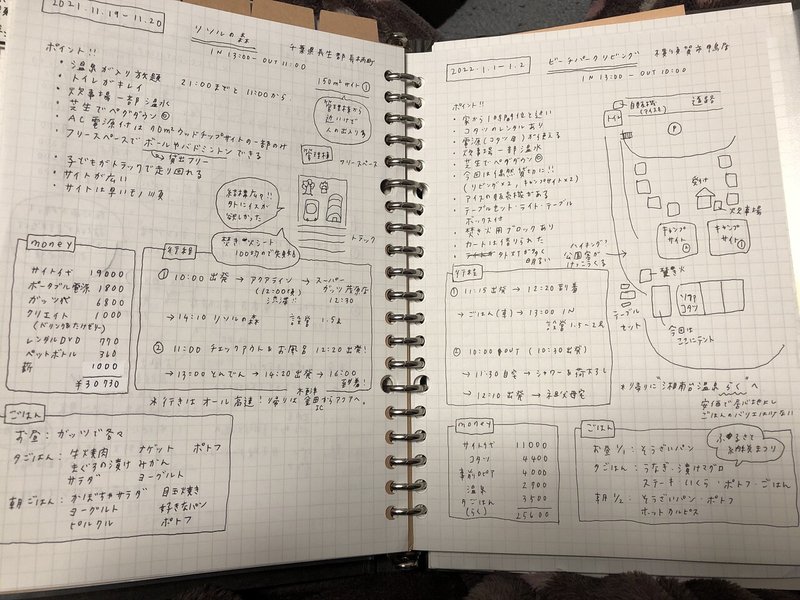 2021.11.19~11.20
リソルの森
千葉県長生郡長柄町
IN 13:00 - OUT 11:00
ポイント!!
・温泉が入り放題
21:00までと 11:00から
・トイレがキレイ
・炊事場一部温水
・芝生でペグダウン
・AC電源付は 90㎡ウッドチップサイトの一部のみ
・フリースペースで ボールやバドミントンできる
貸出フリー
・子どもがトラックで走り回れる
・サイトが広い
・サイトは早いモノ順
150㎡サイト①
管理棟から
近いけど
人の出入り多
管理棟
フリースペース
結構広々!!
外にイスが
欲しかった
トラック
焚き火シート
100均ので失敗
money
サイトイナ 19000
ポータブル電源 1800
ガッツ代 6800
クリエイト 1000
レンタルDVD 770
ペットボトル 360
薪 1000
¥30730
行程
① 10:00 出発 → アクアライン → スーパー
(12:00頃) ガッツ茂原店
渋滞!! 12:30
→ 14:10 リソルの森 設営 1.5h
② 11:00 チェックアウト&お風呂 12:20出発!
→ 13:00 とんでん → 14:20 出発 → 16:00
到着!
※行きはオール高速!帰りは
IC
アクアへ。
ごはん
お昼:ガッツで各々
夕ごはん:牛焼肉 ナゲット ポトフ
まぐろの漬け みかん
サラダ ヨーグルト
朝ごはん:かぼちゃサラダ 目玉焼き
ヨーグルト 好きなパン
ピルクル ポトフ
2022.1.1~1.2
ビーチパークリビング
横須賀市鴨居
IN 13:00 - OUT 10:00
ポイント!!
・家から1時間位と近い
・コタツのレンタルあり
・電源(コタツ用)が使える
・炊事場一部温水
・芝生でペグダウン
・今回は偶然貸切に!!
(リビング×2、キャンプサイト×2)
・アイスの販売機がある
・テーブルセット・ライト・テーブル
ボックス付
・焚き火用ブロックあり
・カートは借りられた
明るい
自販機
(アイスも)
道路
トイレ
P
受付
炊事場
キャンプ
サイト
キャンプ
サイト①
ハイキング?
公園客が
けっこうくる
焚き火
ソファ
コタツ
テーブル
セット
今回は
ここにテント
行程
① 11:15 出発 → 12:20 到着
→ ごはん(車) → 13:00 IN
設営 1.5-2h
② 10:00 OUT (10:30出発)
→ 11:30 自宅 → シャワー&荷下ろし
→ 12:10 出発 → 祖父母宅
※帰りに"湘南台温泉 らく"へ
安価で居心地よし
ごはんのバリエはげない
money
サイトイナ 11000
コタツ 4400
事前 4000
温泉 2900
夕ごはん 3500
(らく)
25600
ごはん
お昼 1/1:そうざいパン
夕ごはん:うなぎ・漬けマグロ
ステーキ・いくら・ポトフ・ごはん
朝 1/2:そうざいパン・ポトフ
ホットカルピス